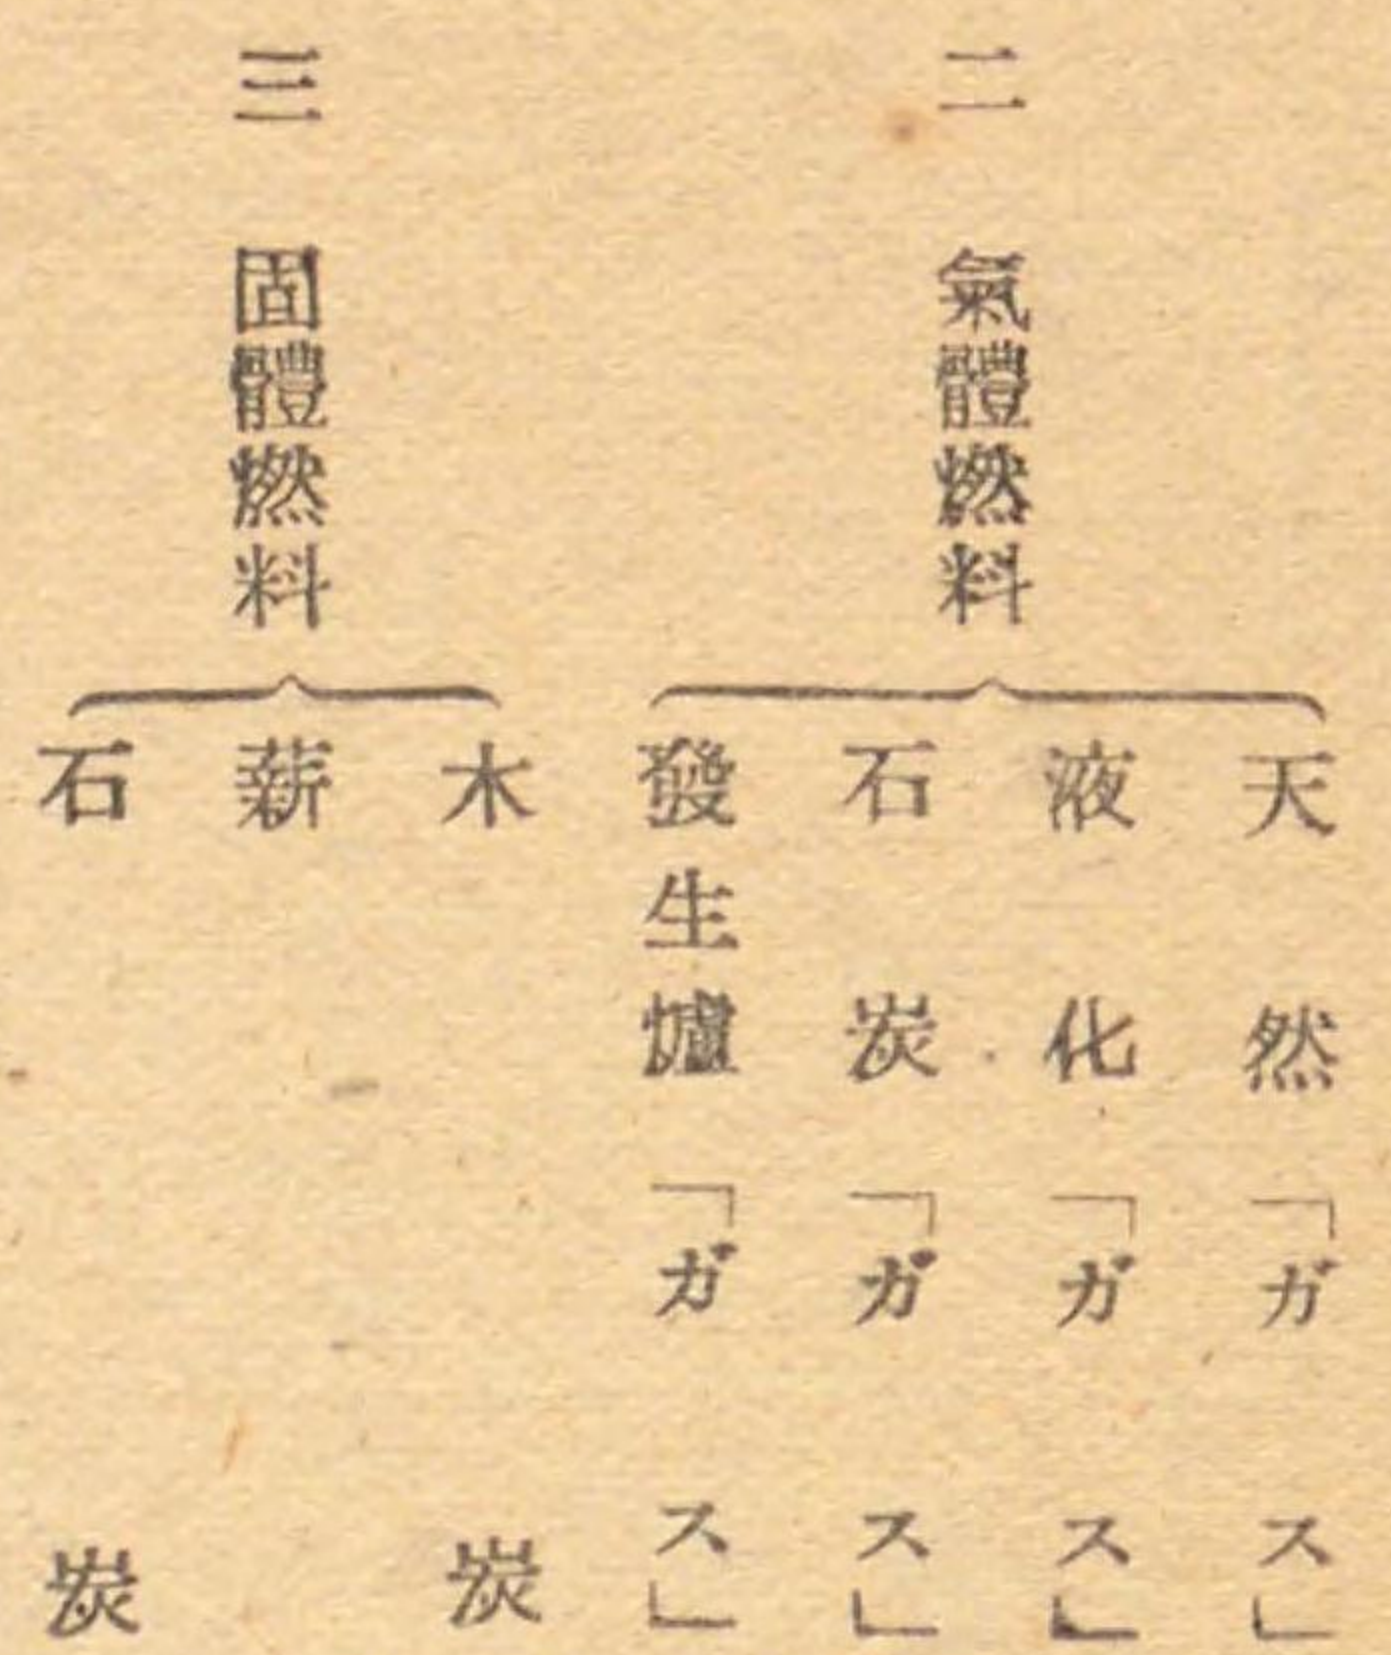 二 氣體燃料
天然「ガス」
液化「ガス」
石炭「ガス」
發生爐「ガス」
三 固體燃料
木炭
薪
石炭